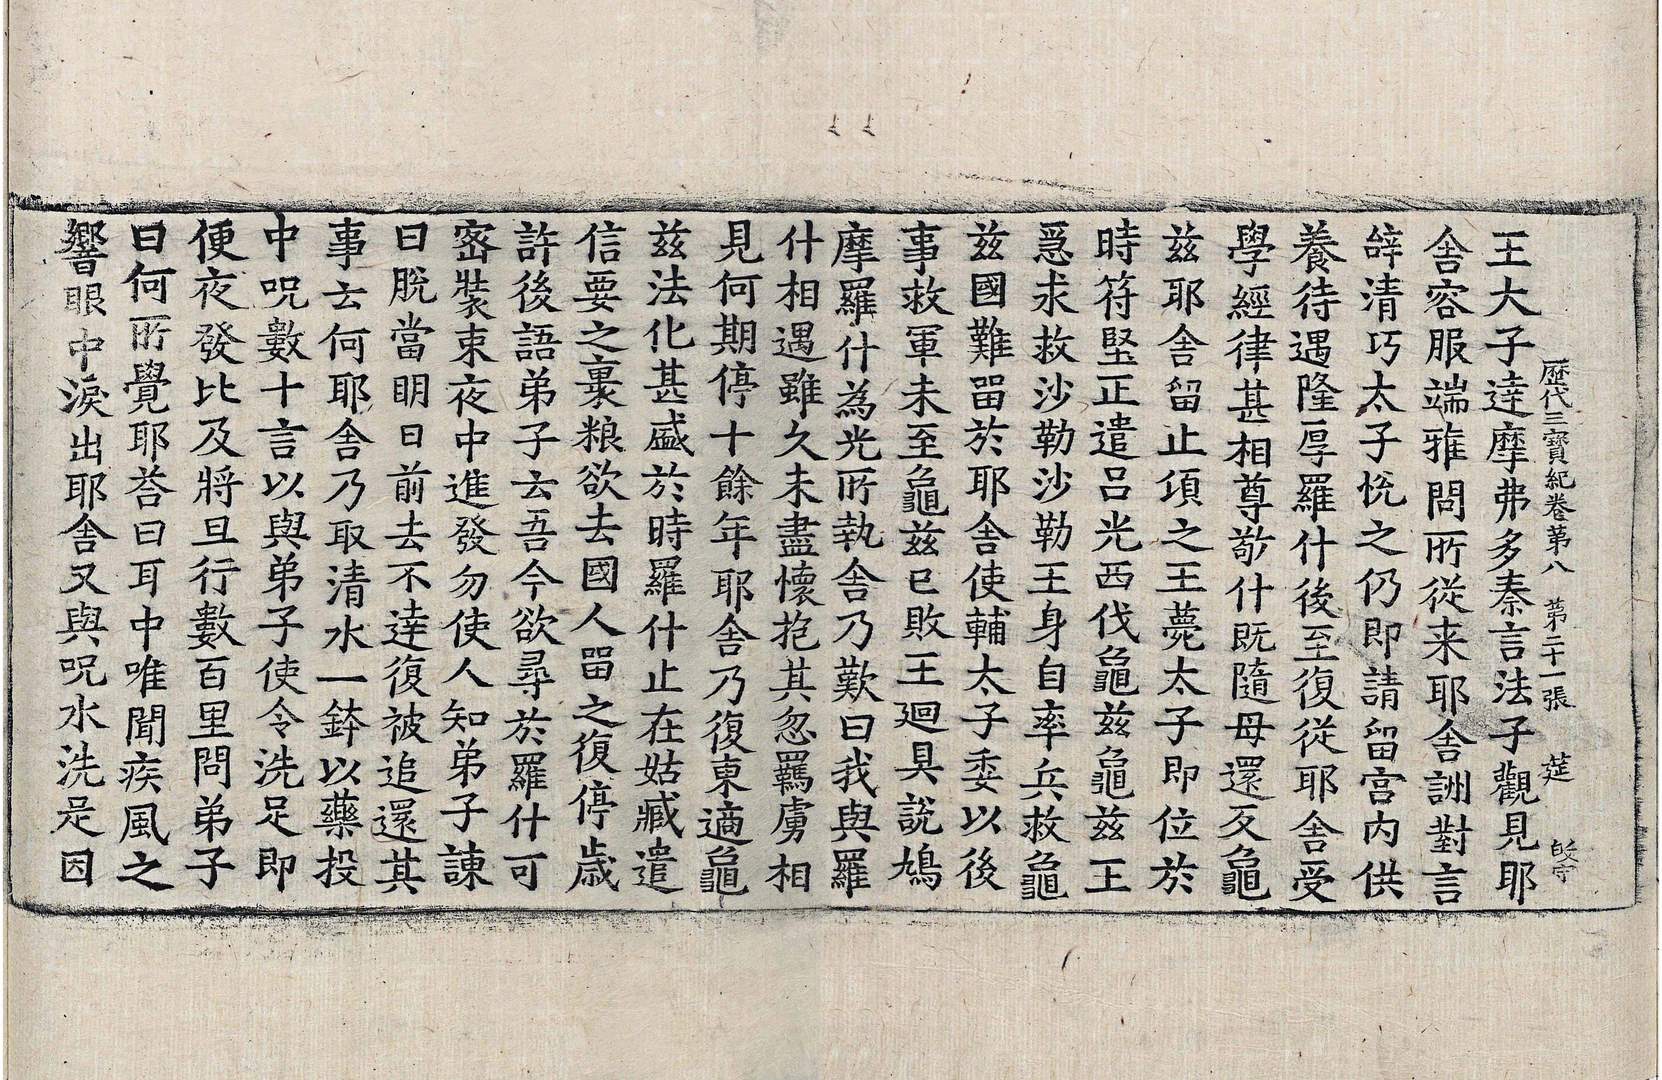 歷代三寶紀卷第八 第二十一張 莚
王大子達摩弗多秦言法子觀見耶
舍容服端雅問所從来耶舍詶對言
辤清巧太子恱之仍即請留宮内供
養待遇隆厚羅什後至復從耶舍受
學經律甚相尊敬什既隨母還反龜
茲耶舍留止項之王薨太子即位於
時符堅正遣呂光西伐龜茲龜茲王
急求救沙勒沙勒王身自率兵救龜
茲國難畱於耶舍使輔太子委以後
事救軍未至龜茲已敗王廻具說鳩
摩羅什為光所執舍乃歎曰我與羅
什相遇雖久未盡懷抱其忽羈虜相
見何期停十餘年耶舍乃復東適龜
茲法化甚盛於時羅什止在姑臧遣
信要之裹粮欲去國人畱之復停歲
許後語弟子云吾今欲尋於羅什可
密裝束夜中進發勿使人知弟子諫
曰脫當明日前去不達復被追還其
事云何耶舍乃取清水一鉢以藥投
中呪數十言以與弟子使令洗足即
便夜發比及將旦行數百里問弟子
曰何所覺耶荅曰耳中唯聞疾風之
響眼中淚出耶舍又與呪水洗足因